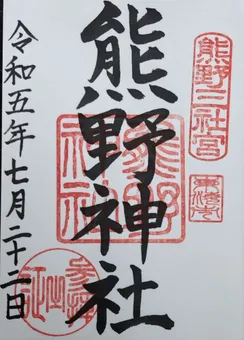 熊野三社宮
熊野神社
熊野
神社
令和五年七月二十二日